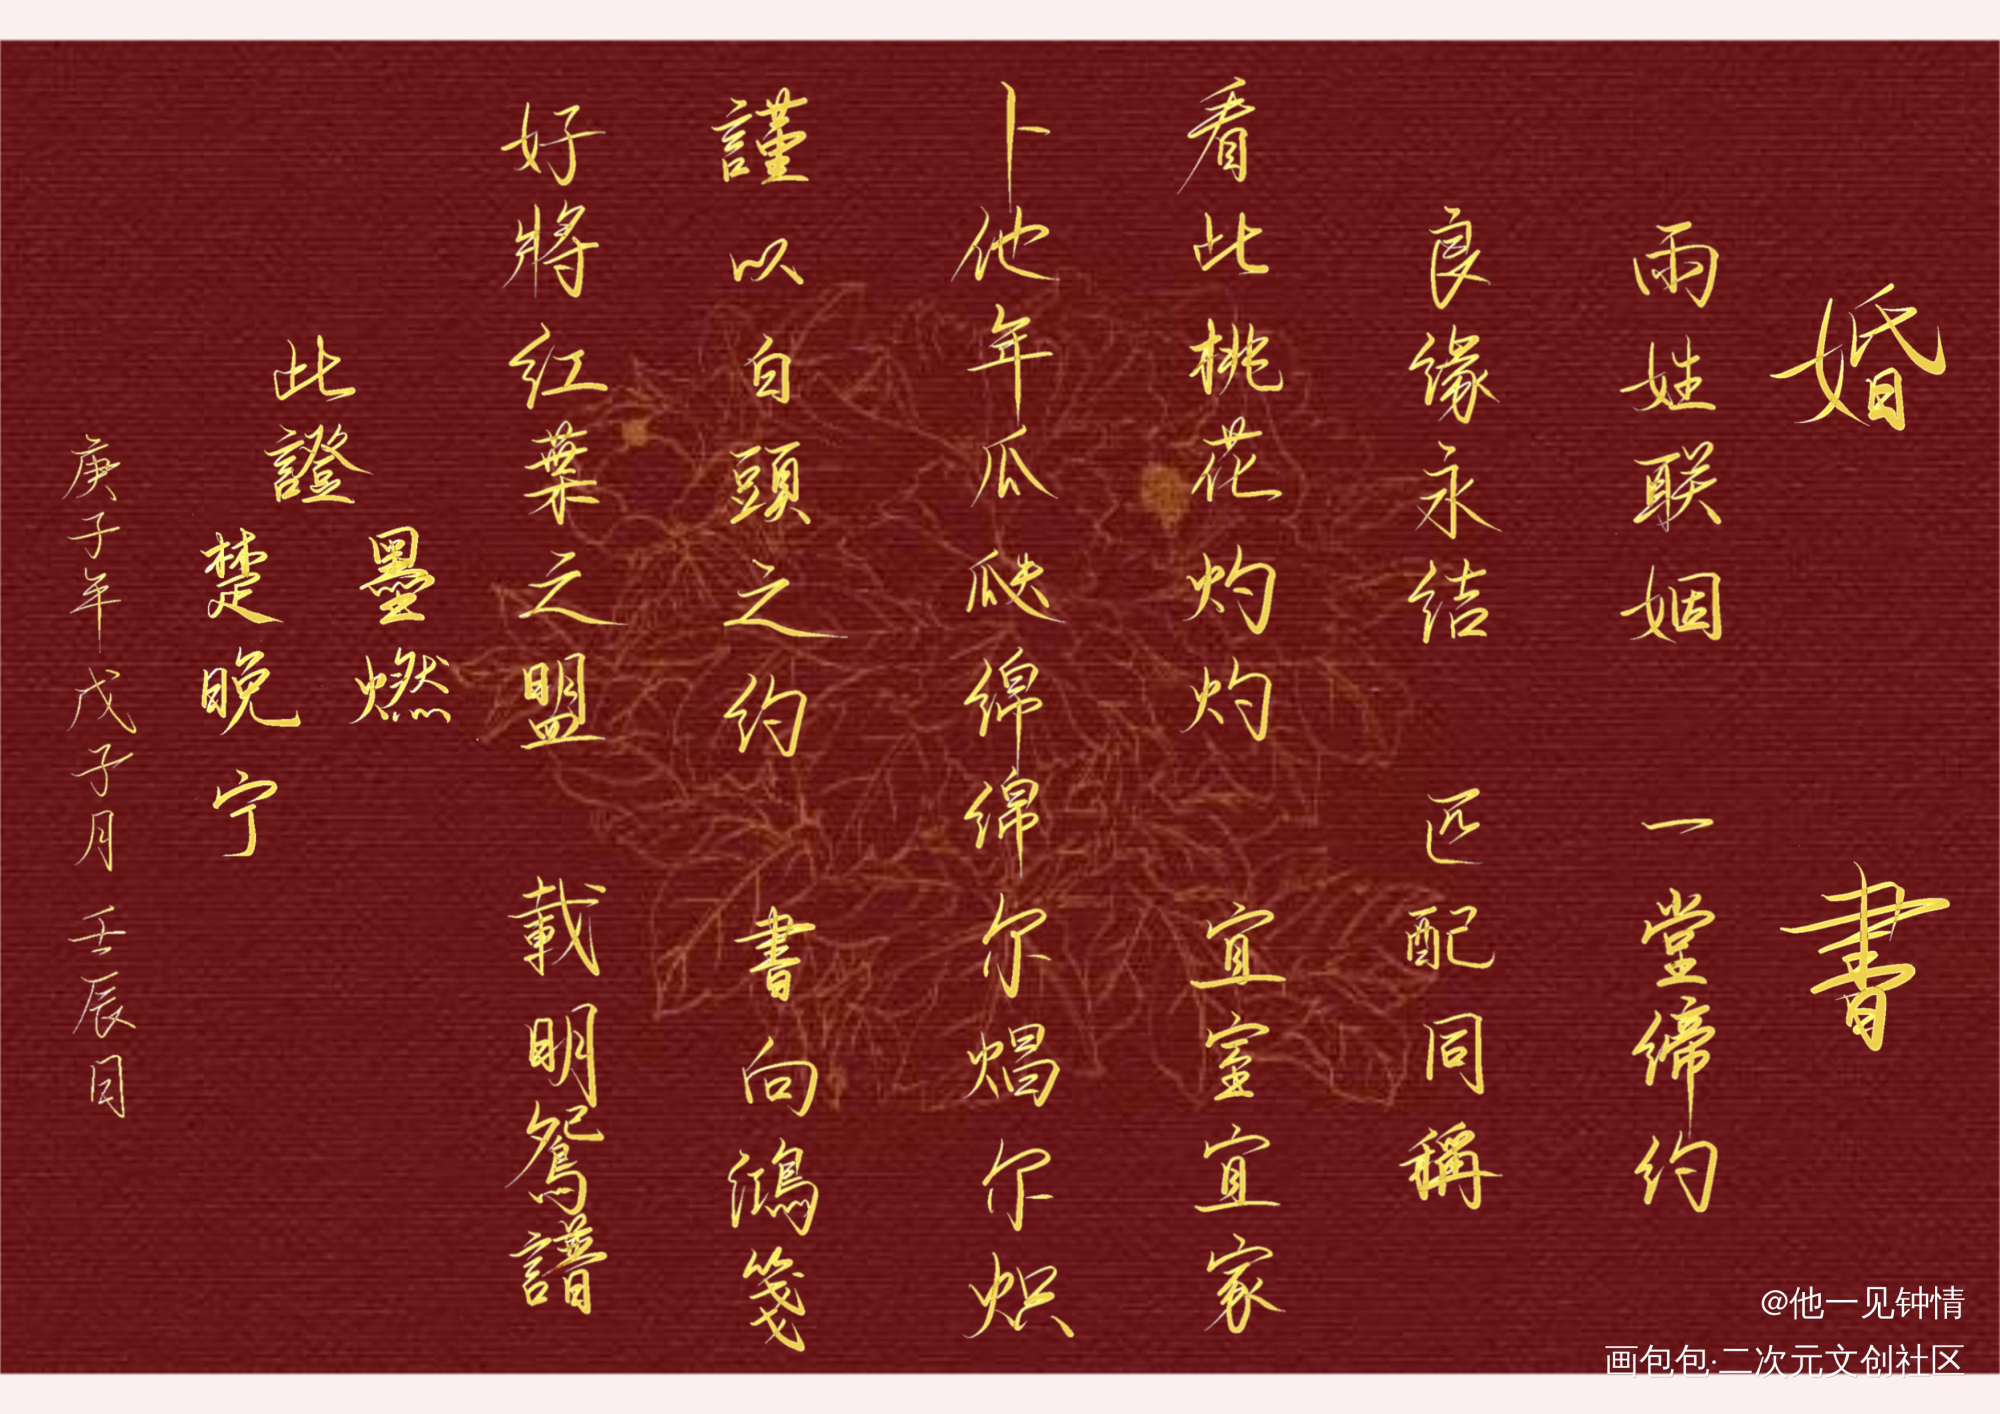 婚書
兩姓联姻 一堂締约
良缘永结 匹配同稱
看此桃花灼灼 宜室宜家
卜他年瓜瓞绵绵 尔焻尔炽
謹以白頭之约 書向鴻笺
好將红葉之盟 載明鴛譜
此證
墨燃
楚晚宁
庚子年戊子月壬辰日
@他一见钟情
画包包·二次元文创社区